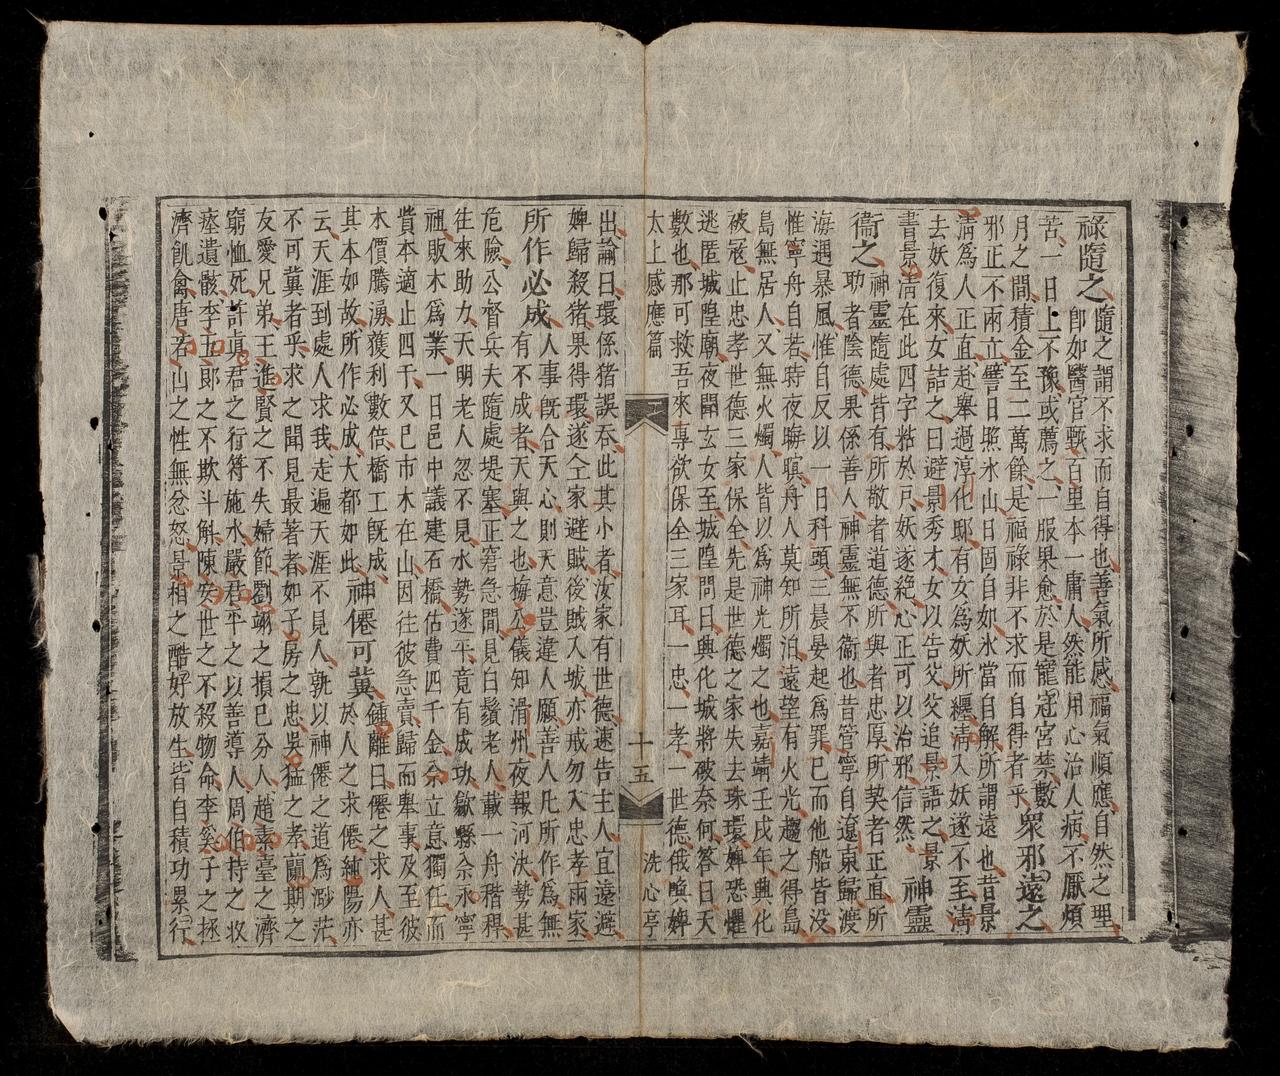 祿隨之隨之謂不求而自得也善氣所感福氣順應自然之理
即如醫官甄百里本一庸人然能用心治人病不厭煩
苦一日上不豫或薦之一服果愈於是寵冠宮禁數
月之間積金至二萬餘是福祿非不求而自得者乎衆邪遠之
邪正不兩立譬日照氷山日固自如氷當自解所謂遠也昔景
清爲人正直赴舉過淳化邸有女爲妖所纏清入妖遂不至清
去妖復來女詰之曰避景秀才女以告父父追景語之景
書景清在此四字粘於戶妖遂絶心正可以治邪信然神靈
衞之神靈隨處皆有所敬者道德所與者忠厚所契者正直所
助者陰德果係善人神靈無不衞也昔管寧自遼東歸渡
海遇暴風惟自反以一日科頭三晨晏起爲罪已而他船皆沒
惟寧舟自若時夜晦暝舟人莫知所泊遠望有火光趨之得島
島無居人又無火燭人皆以爲神光燭之也嘉靖壬戌年興化
被寇止忠孝世德三家保全先是世德之家失去珠環婢恐懼
逃匿城隍廟夜聞玄女至城隍問曰興化城將破奈何答曰天
數也那可救吾來專欲保全三家耳一忠一孝一世德俄喚婢
太上感應篇
十五
洗心亭
出諭曰環係猪誤吞此其小者汝家有世德速告主人宜遠避
婢歸殺猪果得環遂仝家避賊後賊入城亦戒勿入忠孝兩家
所作必成人事旣合天心則天意豈違人願善人凡所作爲無
有不成者天與之也梅公儀知滑州夜報河決勢甚
危險公督兵夫隨處堤塞正窘急間見白鬚老人載一舟稭稈
往來助力天明老人忽不見水勢遂平竟有成功歙縣佘永寧
祖販木爲業一日邑中議建石橋估費四千金佘立意獨任而
貲本適止四千又已市木在山因往彼急賣歸而舉事及至彼
木價騰湧獲利數倍橋工旣成
其本如故所作必成大都如此神僊可冀鍾離曰僊之求人甚
於人之求僊純陽亦
云天涯到處人求我走遍天涯不見人孰以神僊之道爲渺茫
不可冀者乎求之聞見最著者如子房之忠吳猛之孝蘭期之
友愛兄弟王進賢之不失婦節劉翊之損己分人趙素臺之濟
窮恤死許眞君之行符施水嚴君平之以善導人周伯持之收
瘞遺骸李五郎之不欺斗斛陳安世之不殺物命李奚子之拯
濟飢禽唐若山之性無忿怒景相之酷好放生皆自積功累行